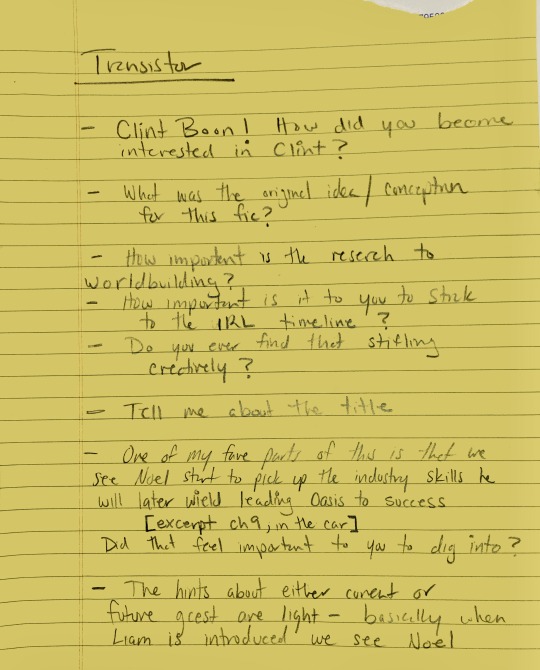 Transistor
- Clint Boon! How did you become
interested in Clint?
- What was the original idea/conception
for this fic?
- How important is the reserch to
worldbuilding?
- How important is it to you to stick
to the IRL timeline?
- Do you ever find that stifling
creatively?
- Tell me about the title
- One of my fave parts of this is that we
see Noel start to pick up the industry skills he
will later wield leading Oasis to success
[excerpt ch9, in the car]
Did that feel important to you to dig into?
- The hints about either current or
future gcest are light - basically when
Liam is introduced we see Noel